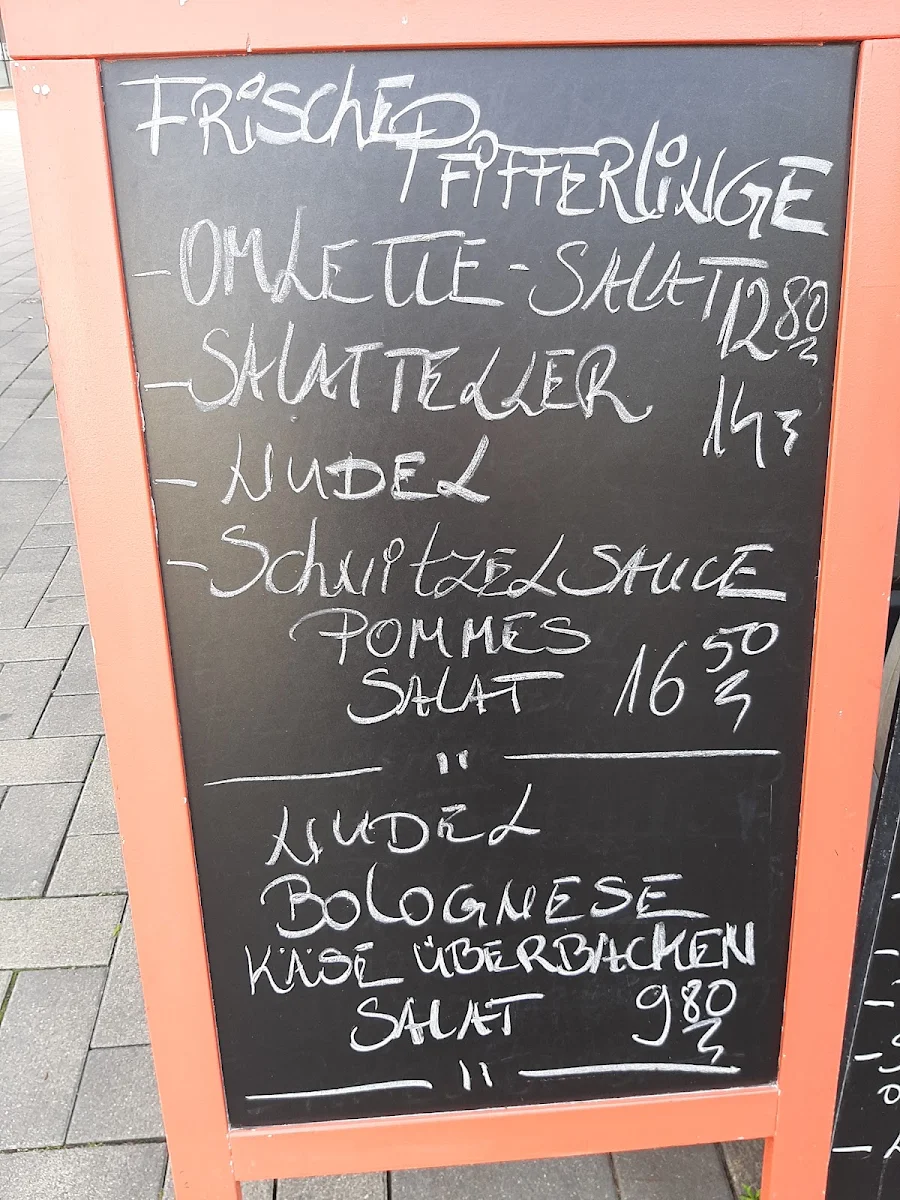 FRISCHE
PFIFFERLINGE
- OMLETTE - SALAT 12 80
- SALATTELLER 14
- NUDEL
- SCHNITZEL SAUCE
POMMES
SALAT 16 50
"
NUDEL
BOLOGNESE
KÄSE ÜBERBACKEN
SALAT 9 80
"